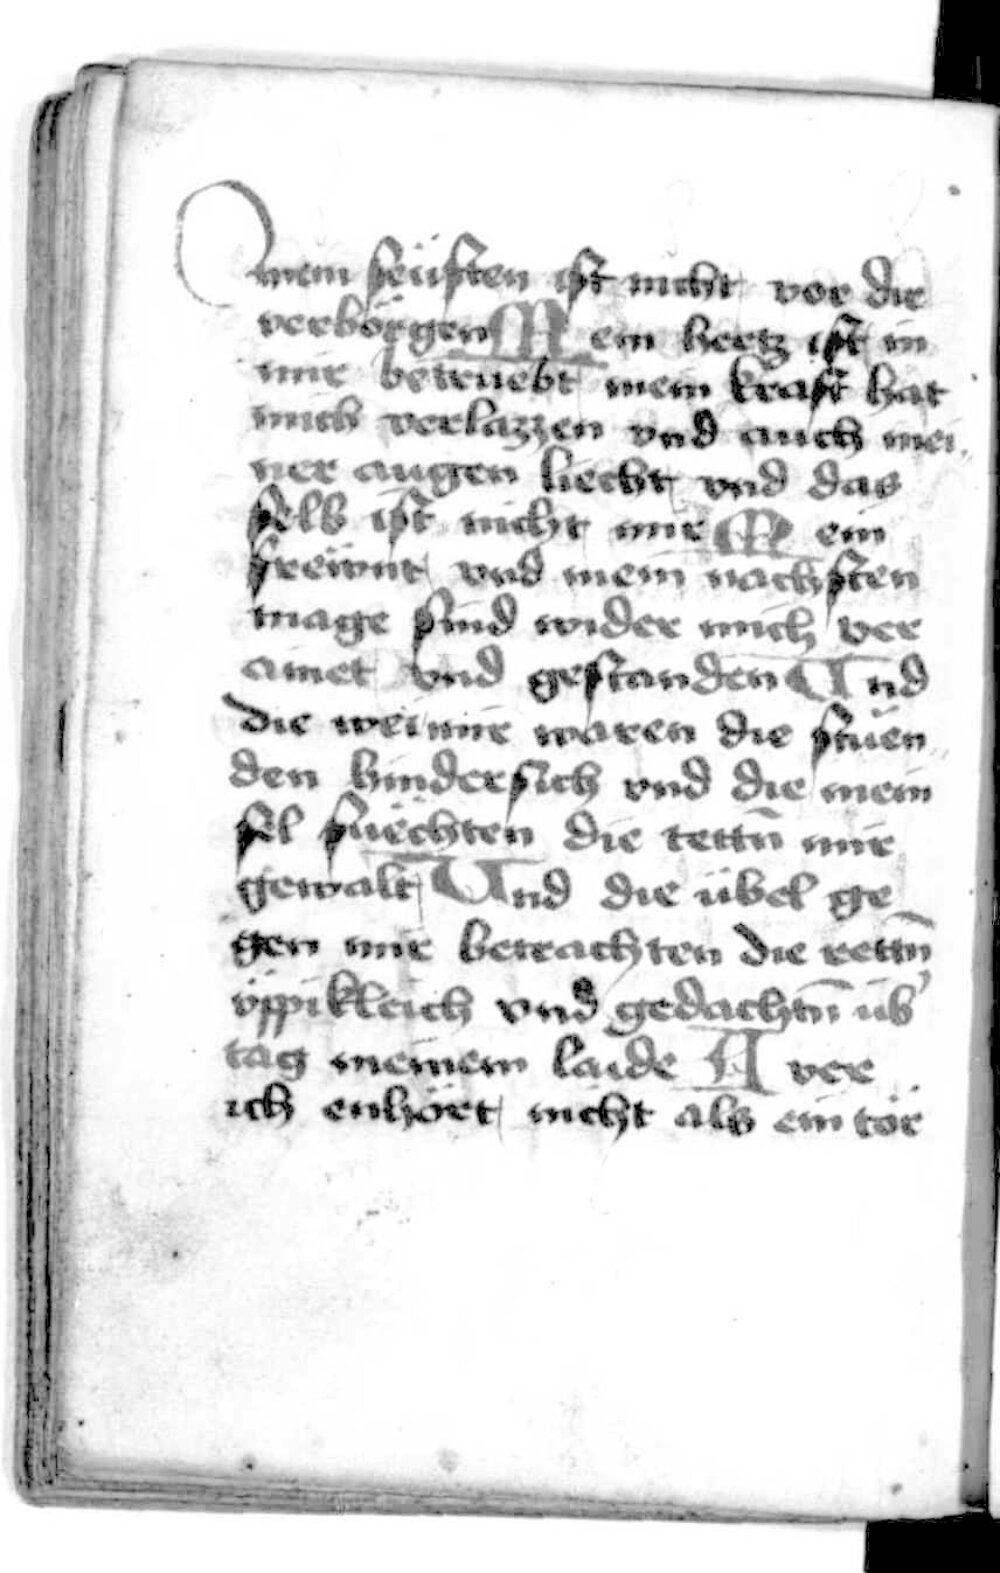 mein seüften ist nicht vor dir
verborgen Mein hertz ist in
mir betruebt mein kraft hat
mich verlazzen vnd auch mei
ner augen liecht vnd das
selb ist nicht mir Mein
freünt vnd mein nächsten
mage sind wider mich ver
ainet vnd gestanden Und
die pei mir waren die stuen
den hindersich vnd die mein
sel suechten die tettn̄ mir
gewalt Und die übel ge
gen mir betrachten die rettn̄
üppikleich vnd gedachtn̄ üb'
tag meinem laide Aver
ich enhört nicht als ein tör